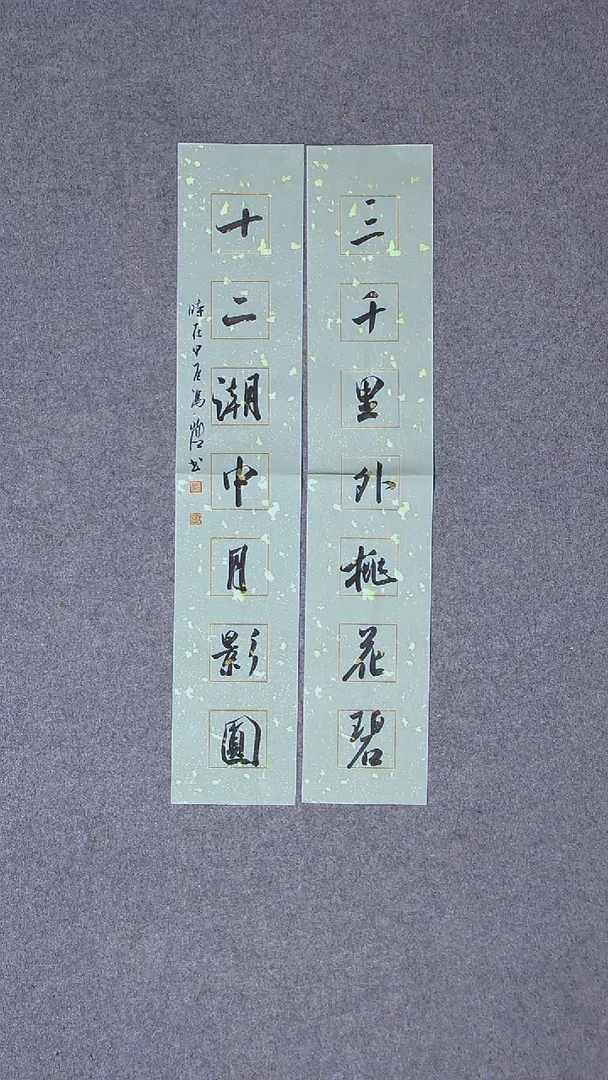 三千里外桃花碧
十二潮中月影圓
時在甲辰馮
书